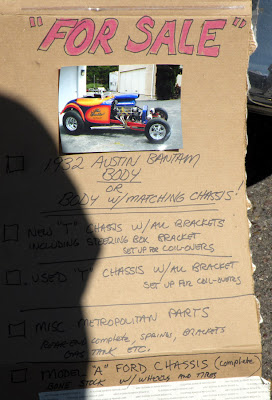 "FOR SALE"
1932 AUSTIN BANTAM
BODY
OR
BODY W/MATCHING CHASSIS!
NEW "T" CHASSIS W/ALL BRACKETS
INCLUDING STEERING BOX BRACKET
SET UP FOR COIL-OVERS
USED "T" CHASSIS W/ALL BRACKET
SET UP FOR COIL-OVERS
MISC METROPOLITAN PARTS
COMPLETE, SPRINGS, BRACKETS
GAS TANK ETC.
MODEL "A" FORD CHASSIS (complete)
STOCK W/ WHEELS AND TIRES